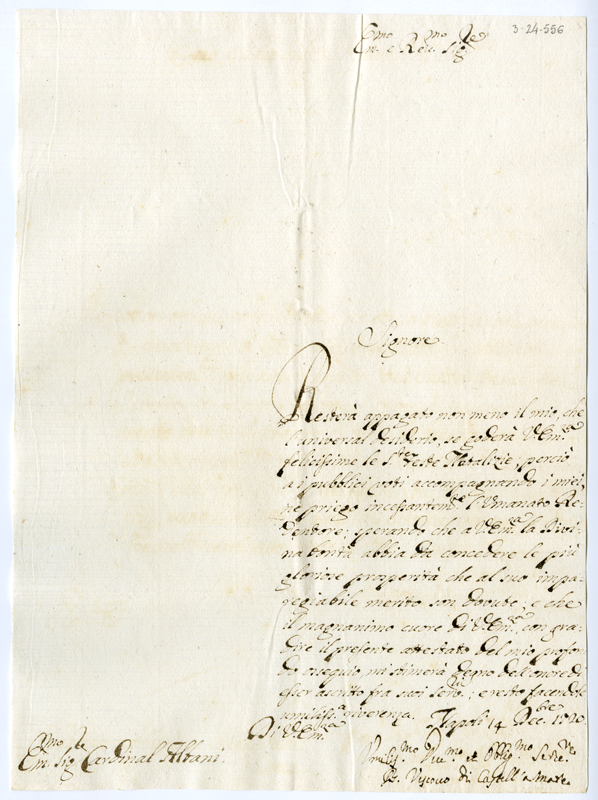 3-24-556
Em.mo e Rev.mo Sig.re
Signore
Resterà appagato non meno il mio, che
l'universal desiderio, se goderà V. Em.za
felicissime le S.te Feste Natalizie; perciò
a i pubblici voti accompagnando i miei,
ne priego incessantem.te l'Umanato Re-
dentore; sperando che a V. Em.za la Divi-
na bontà abbia da concedere le più
gloriose prosperità che al suo impa-
regiabile merito son dovute; e che
il magnanimo cuore di V. Em.za con gra-
dire il presente attestato del mio profon-
do ossequio mi stimerà degno dell'onore di
esser ascritto fra suoi ser.ri; e resto facendole
umiliss.a riverenza. Napoli 14 Dec.bre
Di V. Em.za
Em.mo Sig.re Cardinal Albani.
Umilis.mo Div.mo et Obblig.mo Serv.re
Vescovo di Castell'a Mare